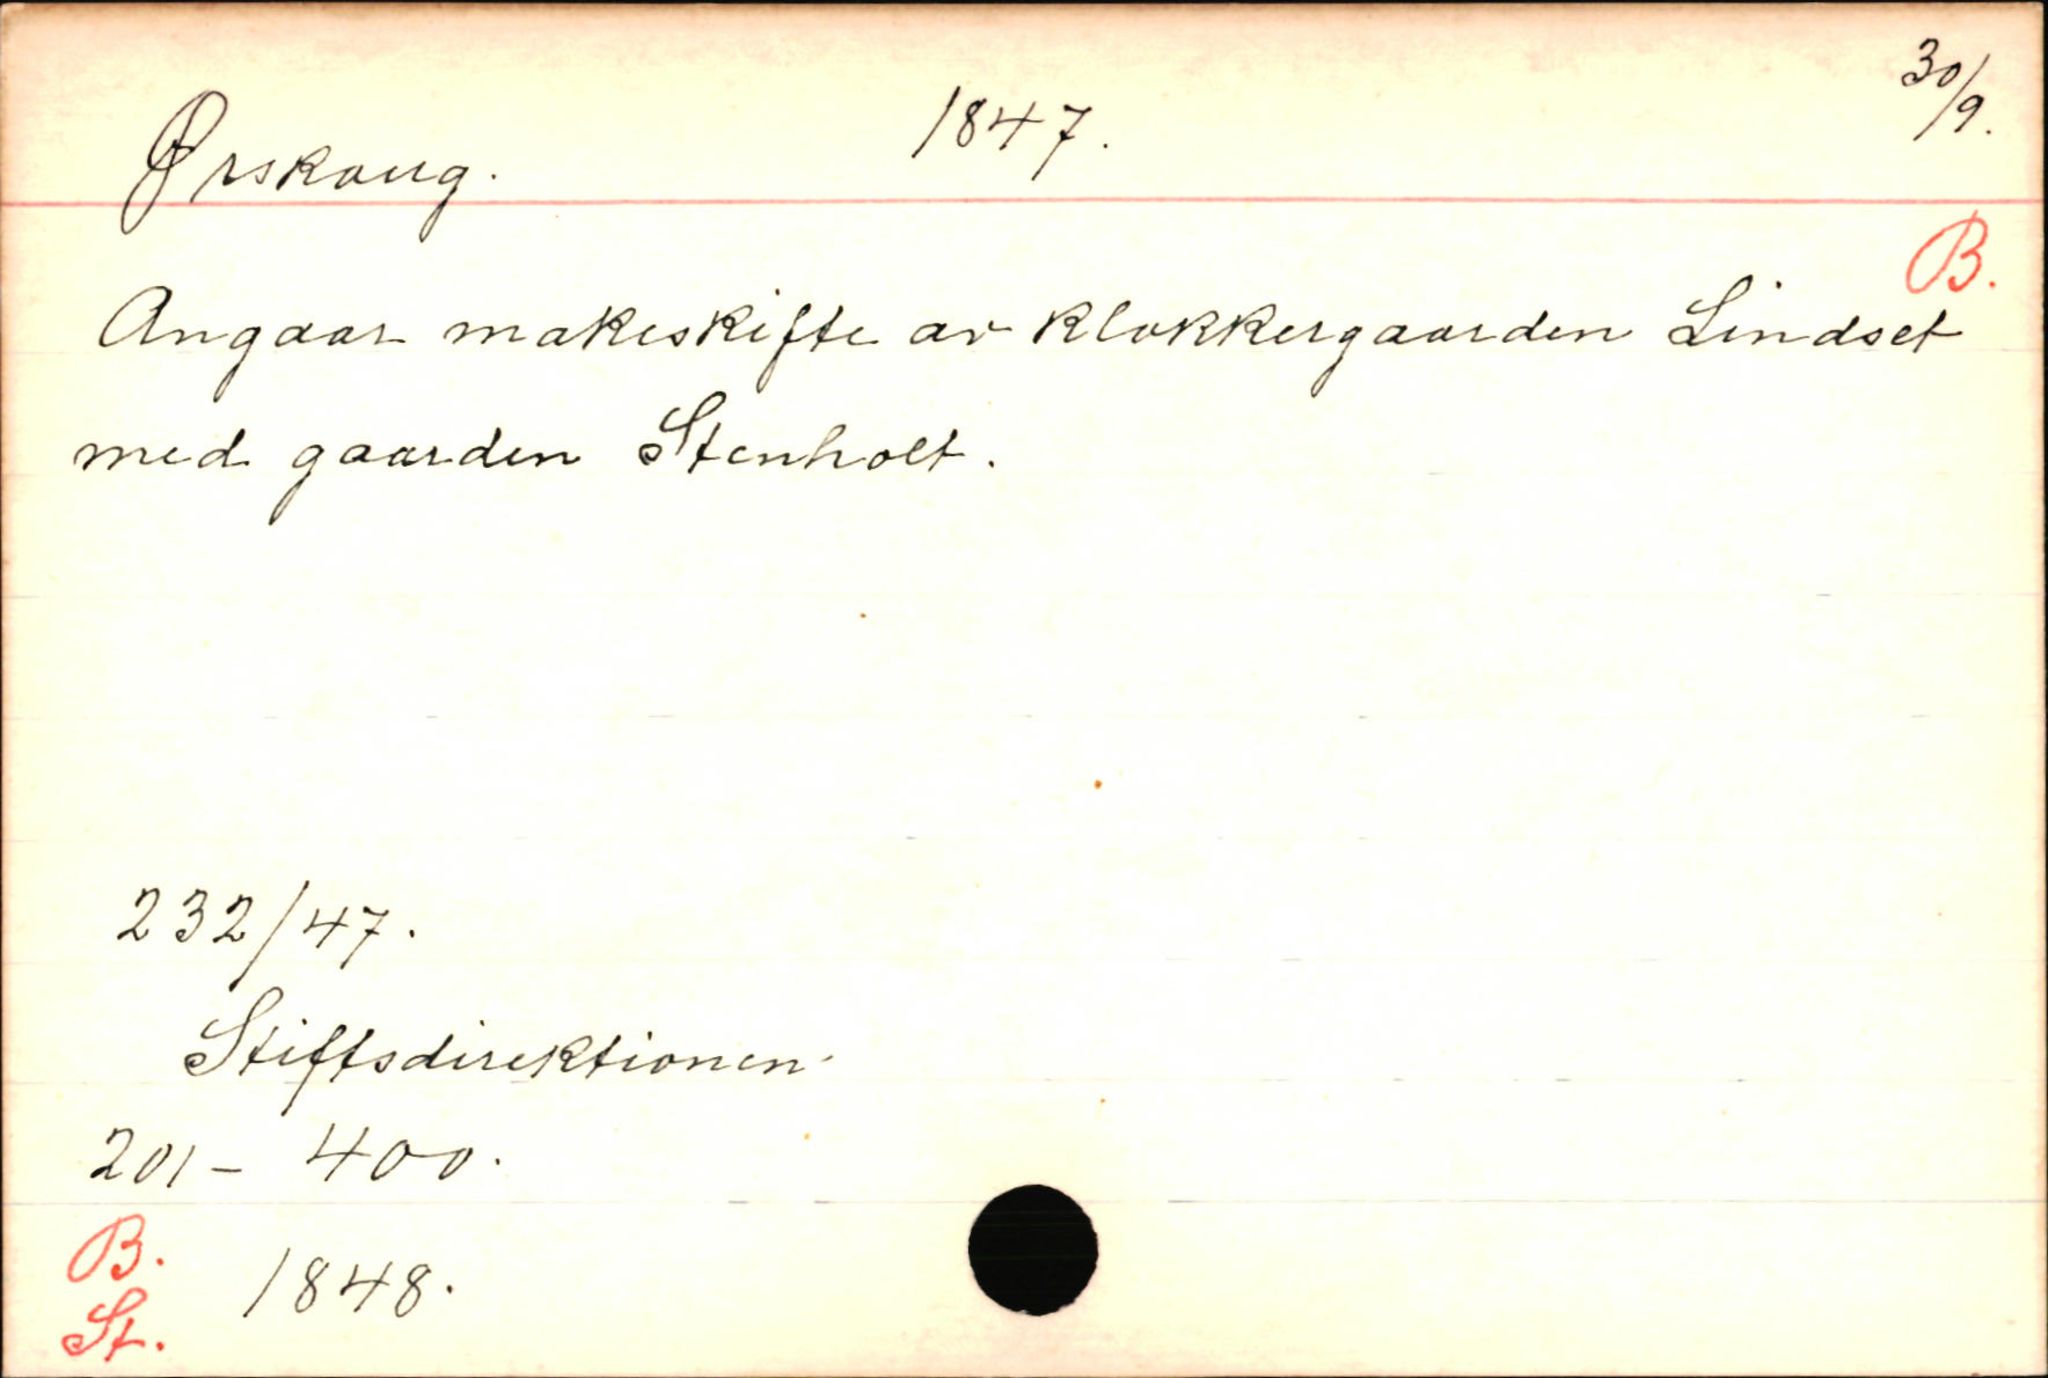 Ørskoug. 1847. 30/9.
B.
Angaar makeskifte av klokkergaarden Lindset
med gaarden Stenholt.
232/47.
Stiftsdirektionen.
201 - 400.
B. 1848.
St.